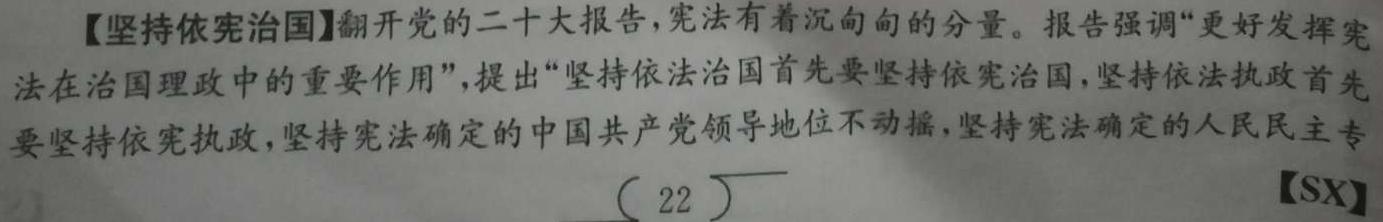 【坚持依宪治国】翻开党的二十大报告,宪法有着沉甸甸的分量。报告强调“更好发挥宪
法在治国理政中的重要作用”,提出“坚持依法治国首先要坚持依宪治国,坚持依法执政首先
要坚持依宪执政,坚持宪法确定的中国共产党领导地位不动摇,坚持宪法确定的人民民主专
22
【SX】